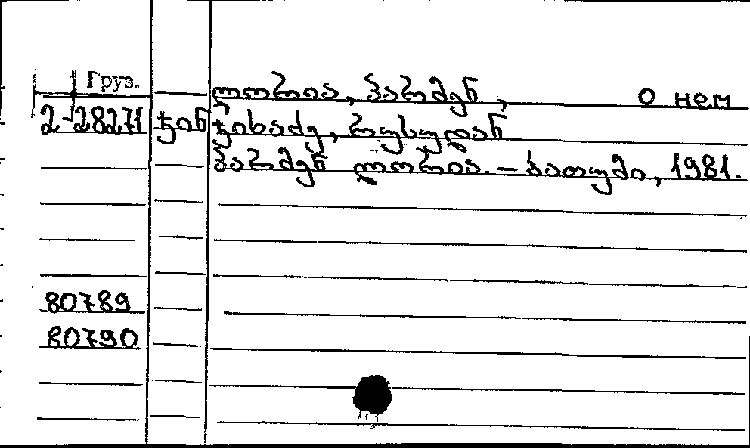 Груз.
ლორია, პარმენ, о нем
2-28271 ჯინ ჯინჯიხაძე, რუსუდან
პარმენ ლორია. – ბათუმი, 1981.
80789
80790